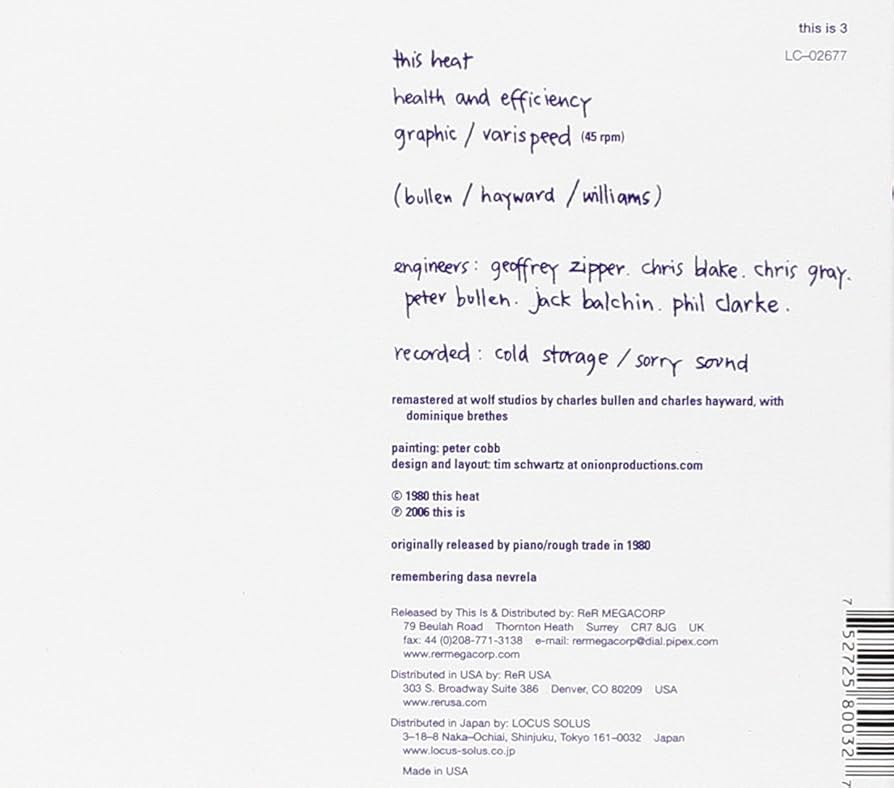 this is 3
LC–02677
this heat
health and efficiency
graphic / varispeed (45 rpm)
(bullen / hayward / williams)
engineers: geoffrey zipper. chris blake. chris gray.
peter bullen. jack balchin. phil clarke.
recorded: cold storage / sorry sound
remastered at wolf studios by charles bullen and charles hayward, with
dominique brethes
painting: peter cobb
design and layout: tim schwartz at onionproductions.com
© 1980 this heat
℗ 2006 this is
originally released by piano/rough trade in 1980
remembering dasa nevrela
Released by This Is & Distributed by: ReR MEGACORP
79 Beulah Road Thornton Heath Surrey CR7 8JG UK
fax: 44 (0)208-771-3138 e-mail: rermegacorp@dial.pipex.com
www.rermegacorp.com
Distributed in USA by: ReR USA
303 S. Broadway Suite 386 Denver, CO 80209 USA
www.rerusa.com
Distributed in Japan by: LOCUS SOLUS
3–18–8 Naka–Ochiai, Shinjuku, Tokyo 161–0032 Japan
www.locus-solus.co.jp
Made in USA
7 52725 80032 7